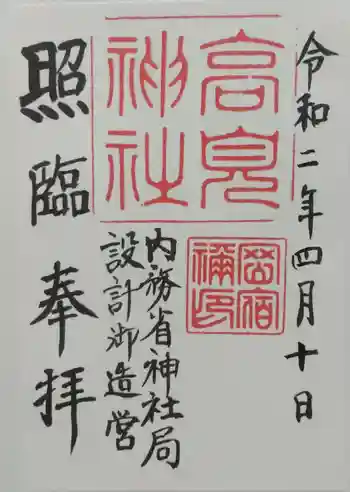 令和二年四月十日
高見
神社
内務省神社局
設計御造営
照臨奉拝